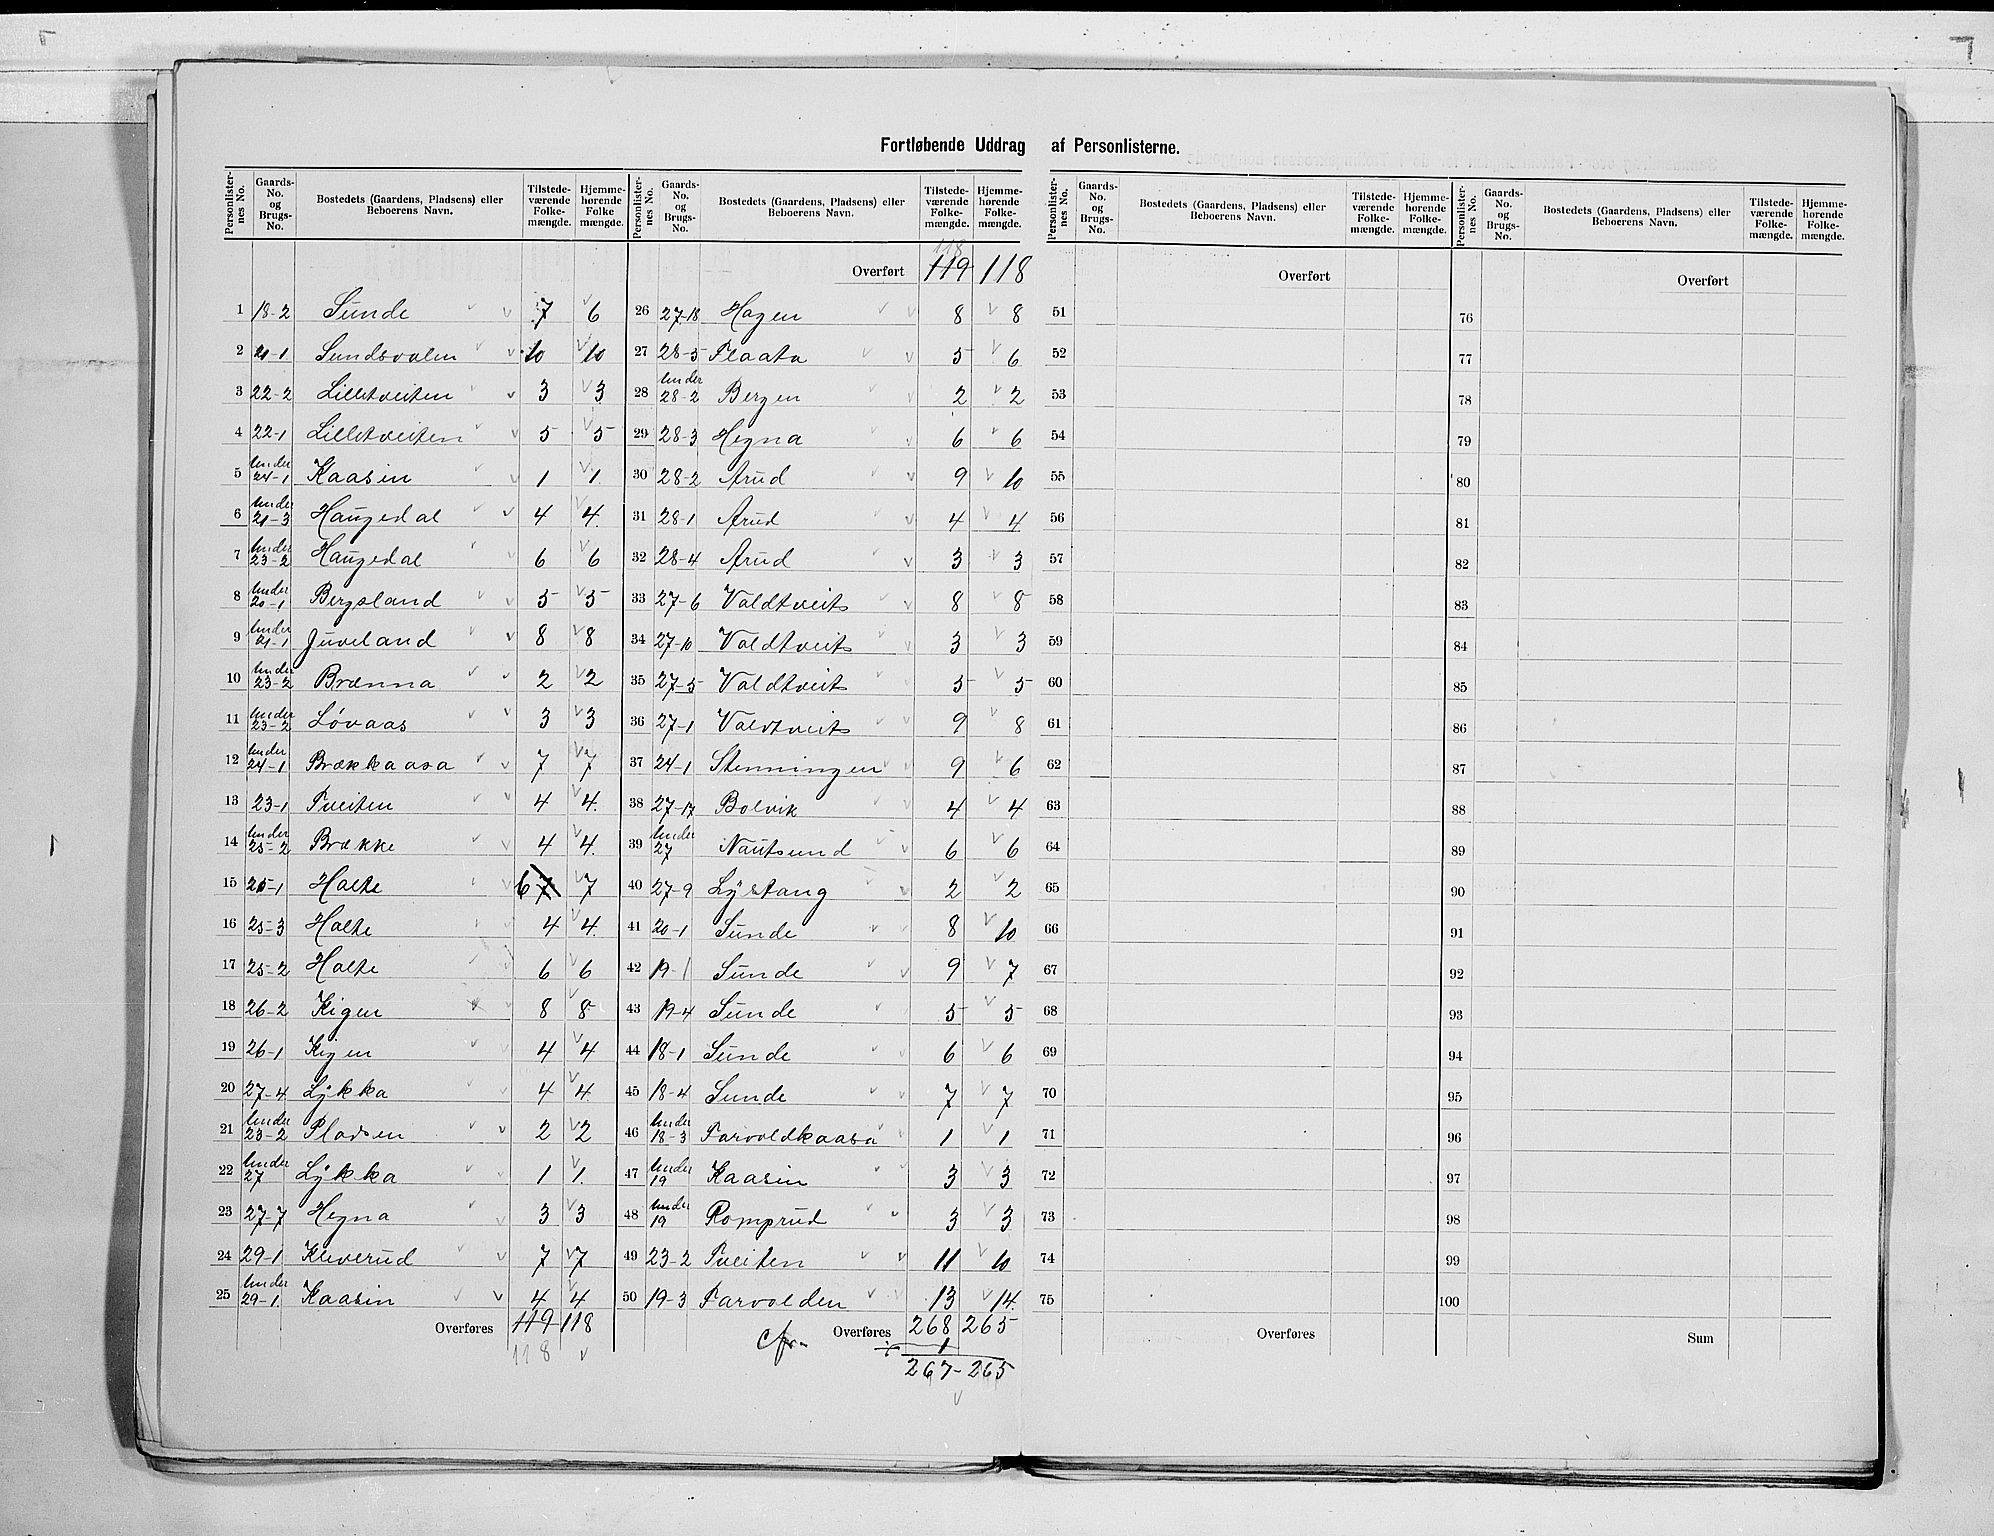 Fortløbende Uddrag af Personlisterne.
Personlister-nes No. Gaards-No. og Brugs-No. Bostedets (Gaardens, Pladsens) eller Beboerens Navn. Tilstede-værende Folke-mængde. Hjemme-hørende Folke mængde.
1 18-2 Sunde 7 6
2 21-1 Sundsvalen 10 10
3 22-2 Lilletveiten 3 3
4 22-1 Lilletveiten 5 5
5 Under 24-1 Kaasin 1 1
6 Under 21-3 Haugedal 4 4
7 Under 23-2 Haugedal 6 6
8 Under 20-1 Bergsland 5 5
9 Under 21-1 Juveland 8 8
10 Under 23-2 Brænna 2 2
11 Under 23-2 Løvaas 3 3
12 Under 24-1 Brækkaasa 7 7
13 23-1 Tveiten 4 4
14 Under 25-2 Brække 4 4
15 25-1 Holte 6 7 7
16 25-3 Holte 4 4
17 25-2 Holte 6 6
18 26-2 Kigen 8 8
19 26-1 Kigen 4 4
20 27-4 Lykka 4 4
21 Under 23-2 Pladsen 2 2
22 Under 27 Lykka 1 1
23 27-7 Hegna 3 3
24 29-1 Kleverud 7 7
25 Under 29-1 Kaasin 4 4
Overføres 119 118
118
Personlister-nes No. Gaards-No. og Brugs-No. Bostedets (Gaardens, Pladsens) eller Beboerens Navn. Tilstede-værende Folke-mængde. Hjemme-hørende Folke-mængde.
118
Overført 119 118
26 27-18 Hagen 8 8
27 28-5 Flaata 5 6
28 Under 28-2 Bergen 2 2
29 28-3 Hegna 6 6
30 28-2 Aarud 9 10
31 28-1 Aarud 4 4
32 28-4 Aarud 3 3
33 27-6 Valdtveit 8 8
34 27-10 Valdtveit 3 3
35 27-5 Valdtveit 5 5
36 27-1 Valdtveit 9 8
37 24-1 Stenningen 9 6
38 27-17 Bolvik 4 4
39 Under 27 Nautsund 6 6
40 27-9 Lystang 2 2
41 20-1 Sunde 8 10
42 19-1 Sunde 9 7
43 19-4 Sunde 5 5
44 18-1 Sunde 6 6
45 18-4 Sunde 7 7
46 Under 18-3 Farvoldkaasa 1 1
47 Under 19 Kaasin 3 3
48 Under 19 Romprud 3 3
49 23-2 Tveiten 11 10
50 19-3 Farvolden 13 14
Overføres 268 265
÷ 1
267 - 265
Personlister-nes No. Gaards-No. og Brugs-No. Bostedets (Gaardens, Pladsens) eller Beboerens Navn. Tilstede-værende Folke-mængde. Hjemme-hørende Folke-mængde.
Overført
51
52
53
54
55
56
57
58
59
60
61
62
63
64
65
66
67
68
69
70
71
72
73
74
75
Overføres
Personlister-nes No. Gaards-No. og Brugs-No. Bostedets (Gaardens, Pladsens) eller Beboerens Navn. Tilstede-værende Folke-mængde. Hjemme-hørende Folke-mængde.
Overført
76
77
78
79
80
81
82
83
84
85
86
87
88
89
90
91
92
93
94
95
96
97
98
99
100
Sum